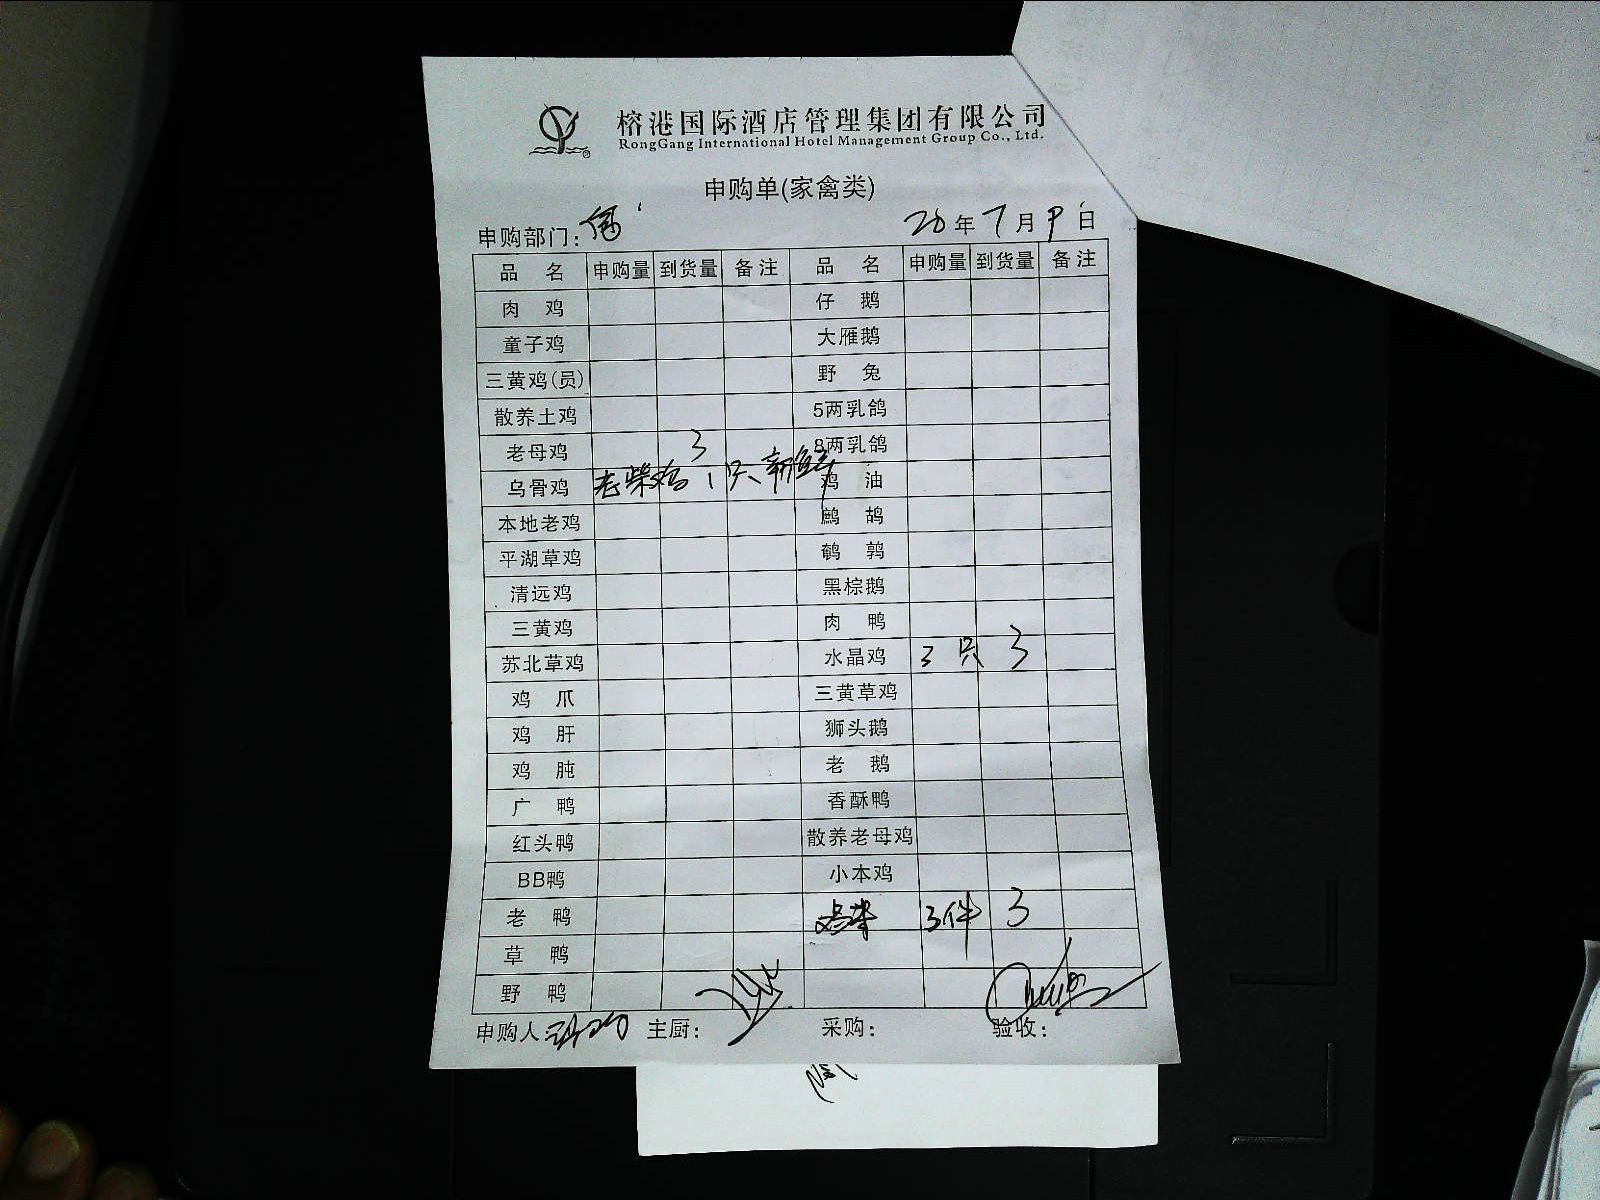 榕港国际酒店管理集团有限公司
RongGang International Hotel Management Group Co., Ltd.
申购单(家禽类)
申购部门: 20年7月9日
品名 申购量 到货量 备注 品名 申购量 到货量 备注
肉鸡 仔鹅
童子鸡 大雁鹅
三黄鸡(员) 野兔
散养土鸡 5两乳鸽
老母鸡 3 8两乳鸽
乌骨鸡 老柴鸡 1只 新鲜 鸡油
本地老鸡 鹧鸪
平湖草鸡 鹌鹑
清远鸡 黑棕鹅
三黄鸡 肉鸭
苏北草鸡 水晶鸡 3只 3
鸡爪 三黄草鸡
鸡肝 狮头鹅
鸡肫 老鹅
广鸭 香酥鸭
红头鸭 散养老母鸡
BB鸭 小本鸡
老鸭 3件 3
草鸭
野鸭
申购人: 主厨: 采购: 验收: